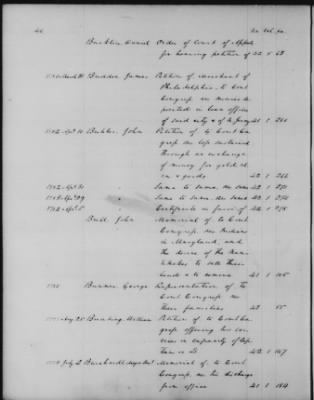 46 No. Vol. pa.
Bucklin, Daniel Order of Court of Appeals
for hearing petition of 42 1 63
March Budden, James Petition of merchant of
Philadelphia, to Cont
Congress, in monies de
posited in loan office
of said city & of N. Jersey 41 1 266
1782 Apl. 10 Buhler, John Petition of to Cont Con
gress in loss sustained
through an exchange
of money for gold at
& goods 42 1 266
1782 Apl. 21 " Same to same, in same 42 1 270
1782 Apl. 29 " Same to same, in same 42 1 274
1782 Apl. 5 " Certificate in favor of 42 1 278
Bull, John Memorial of to Cont
Congress, in Indians
in Maryland, and
the desire of the Nan
to sell their
lands & to remove 41 1 105
Burner, George Representation of to
Cont Congress in
their families 42 55
Aug. 25 Bunting, William Petition of to Cont Con
gress offering his ser
vices in capacity of Cap
tain in 42 1 167
July 2 Burchardt, Memorial of to Cont
Congress, in his discharge
from office 41 1 184